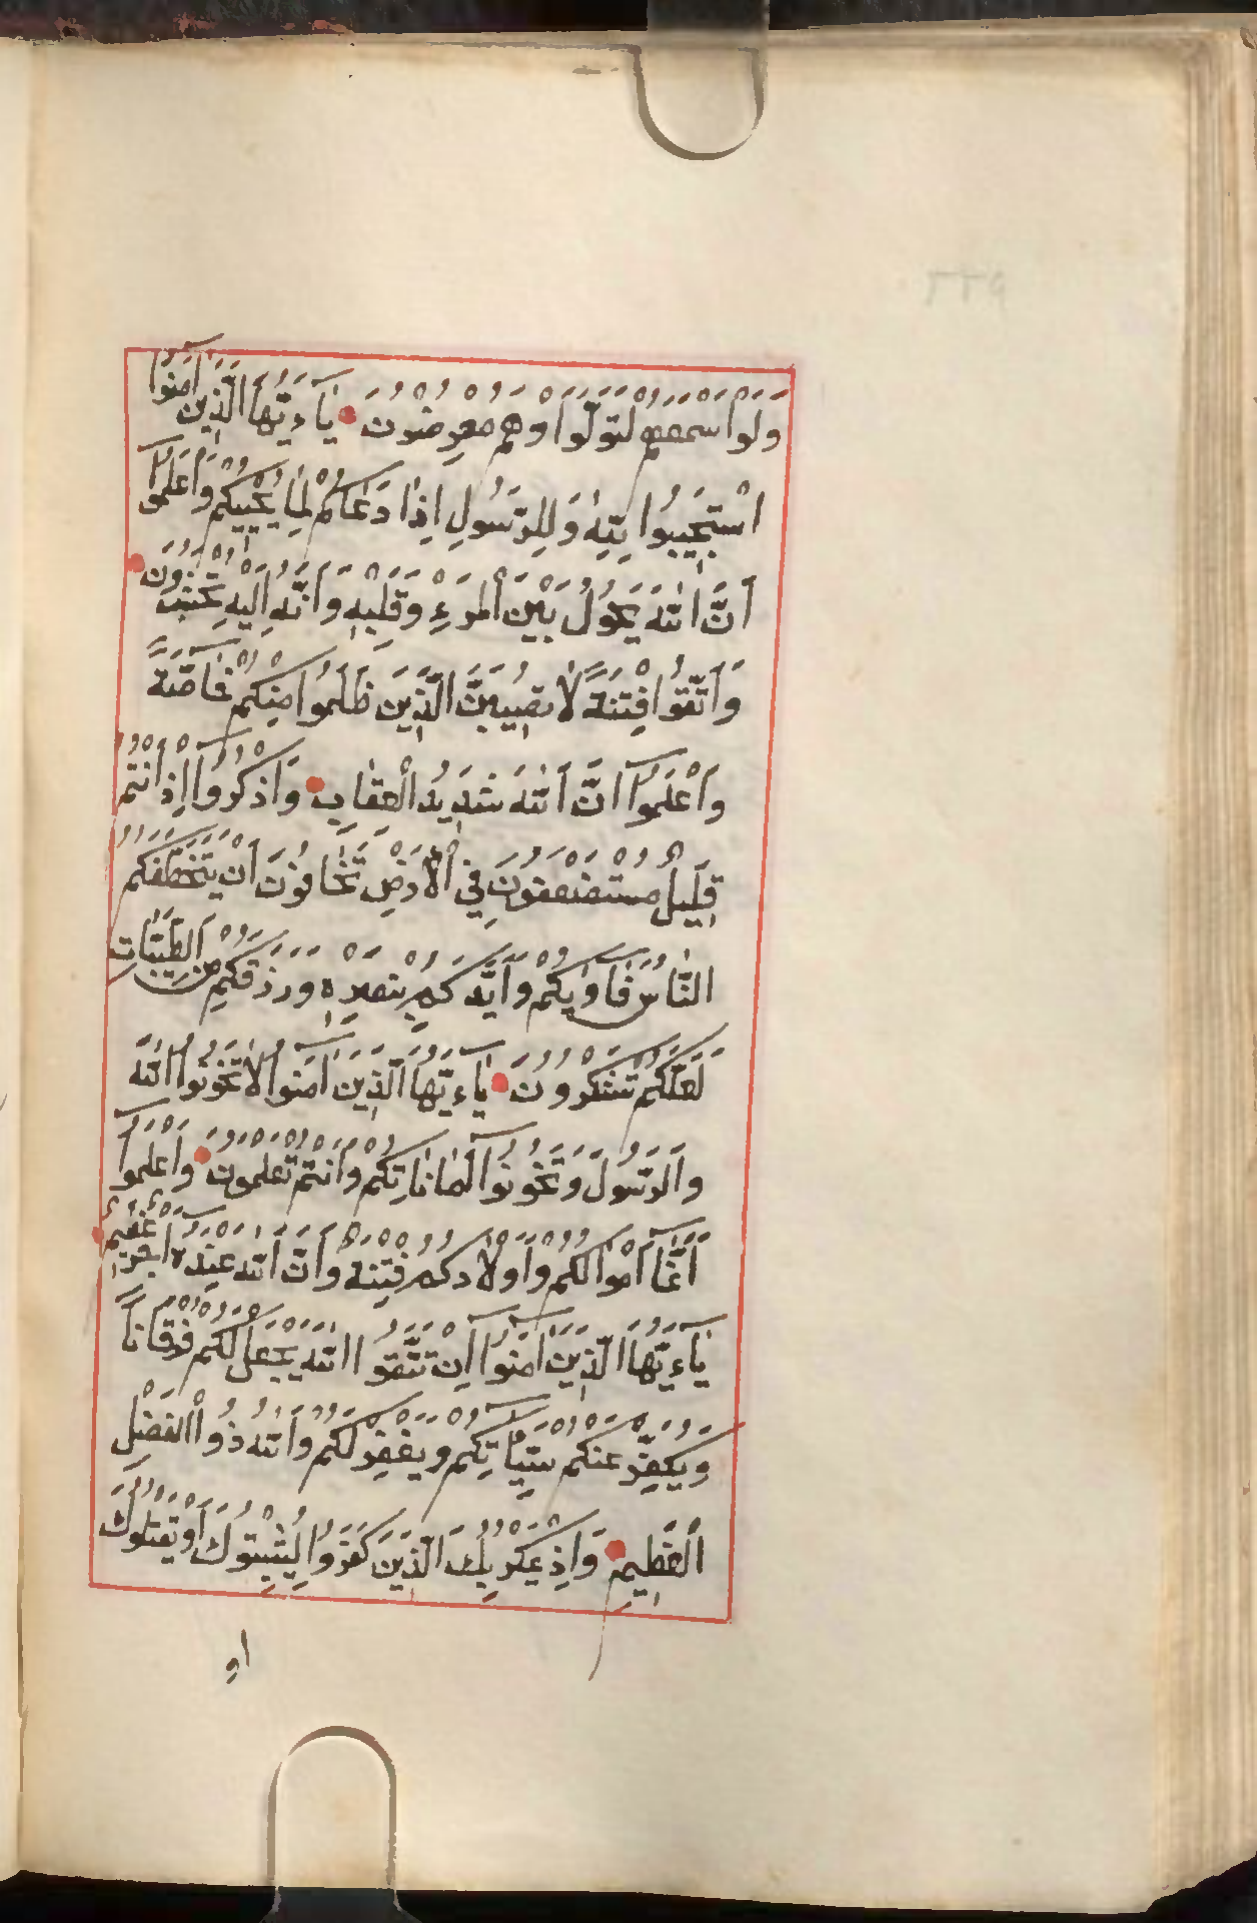 ٢٢٩
وَلَوْ اَسْمَعَهُمْ لَتَوَلَّوْا وَهُمْ مُعْرِضُونَ يَاءَيُّهَا الَّذِينَ آمَنُوا
اسْتَجِيبُوا لِلّٰهِ وَلِلرَّسُولِ اِذَا دَعَاكُمْ لِمَا يُحْيِيكُمْ وَاعْلَمُوا
اَنَّ اللّٰهَ يَحُولُ بَيْنَ الْمَرْءِ وَقَلْبِهِ وَاَنَّهُ اِلَيْهِ تُحْشَرُونَ
وَاتَّقُوا فِتْنَةً لَا تُصِيبَنَّ الَّذِينَ ظَلَمُوا مِنْكُمْ خَاصَّةً
وَاعْلَمُوا اَنَّ اللّٰهَ شَدِيدُ الْعِقَابِ وَاذْكُرُوا اِذْ اَنْتُمْ
قَلِيلٌ مُسْتَضْعَفُونَ فِي الْاَرْضِ تَخَافُونَ اَنْ يَتَخَطَّفَكُمُ
النَّاسُ فَاٰوٰيكُمْ وَاَيَّدَكُمْ بِنَصْرِهِ وَرَزَقَكُمْ مِنَ الطَّيِّبَاتِ
لَعَلَّكُمْ تَشْكُرُونَ يَاءَيُّهَا الَّذِينَ اٰمَنُوا لَا تَخُونُوا اللّٰهَ
وَالرَّسُولَ وَتَخُونُوا اَمَانَاتِكُمْ وَاَنْتُمْ تَعْلَمُونَ وَاعْلَمُوا
اَنَّمَا اَمْوَالُكُمْ وَاَوْلَادُكُمْ فِتْنَةٌ وَاَنَّ اللّٰهَ عِنْدَهُ اَجْرٌ عَظِيمٌ
يَاءَيُّهَا الَّذِينَ اٰمَنُوا اِنْ تَتَّقُوا اللّٰهَ يَجْعَلْ لَكُمْ فُرْقَانًا
وَيُكَفِّرْ عَنْكُمْ سَيِّئَاتِكُمْ وَيَغْفِرْ لَكُمْ وَاللّٰهُ ذُو الْفَضْلِ
الْعَظِيمِ وَاِذْ يَمْكُرُ بِكَ الَّذِينَ كَفَرُوا لِيُثْبِتُوكَ اَوْ يَقْتُلُوكَ
او